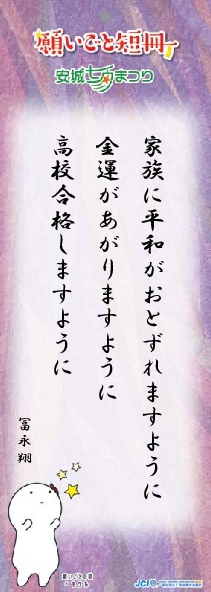 願いごと短冊
安城七夕まつり
家族に平和がおとずれますように
金運があがりますように
高校合格しますように
冨永翔
JCI